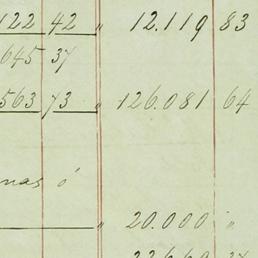 122 42 " 12.119 83
645 37
563 73 " 126.081 64
nas ó
" 20.000 "